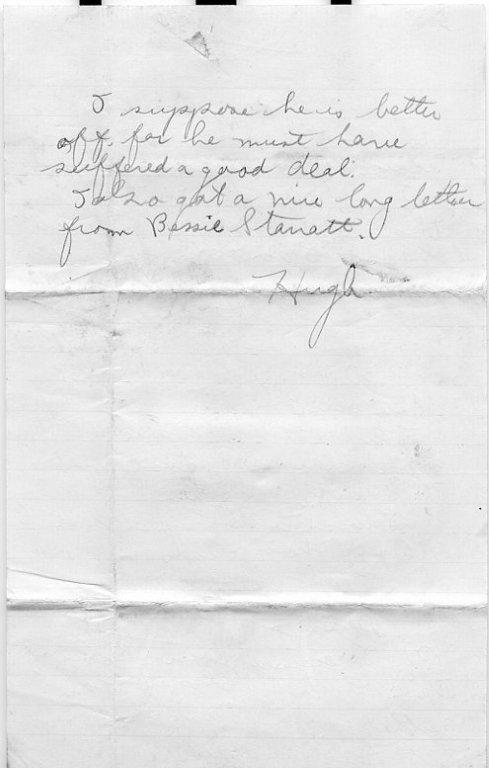 I suppose he is better
off for he must have
suffered a good deal.
I also got a nice long letter
from Bessie
Hugh